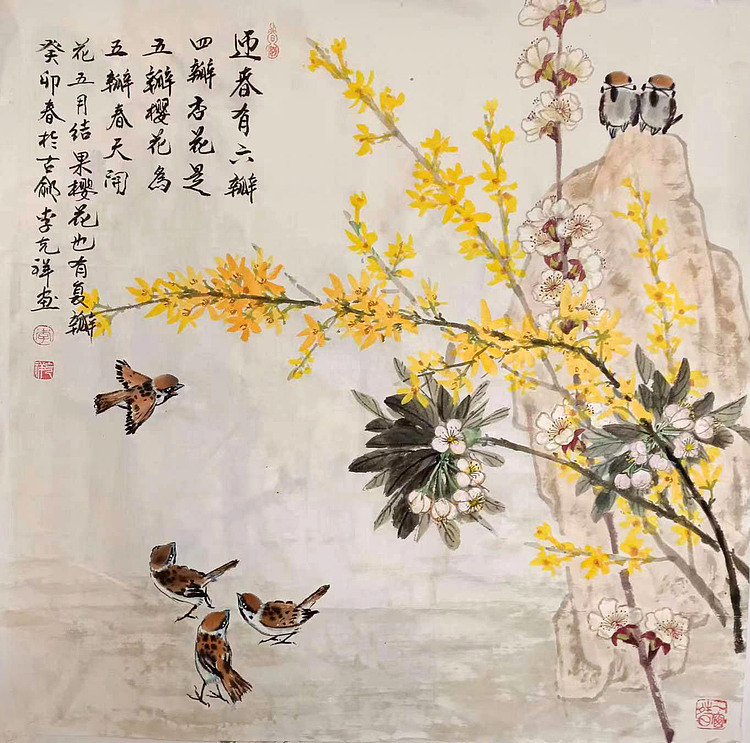 迎春有六瓣
四瓣杏花是
五瓣樱花为
五瓣春天开
花五月结果樱花也有复瓣
癸卯春於古邻李克祥画